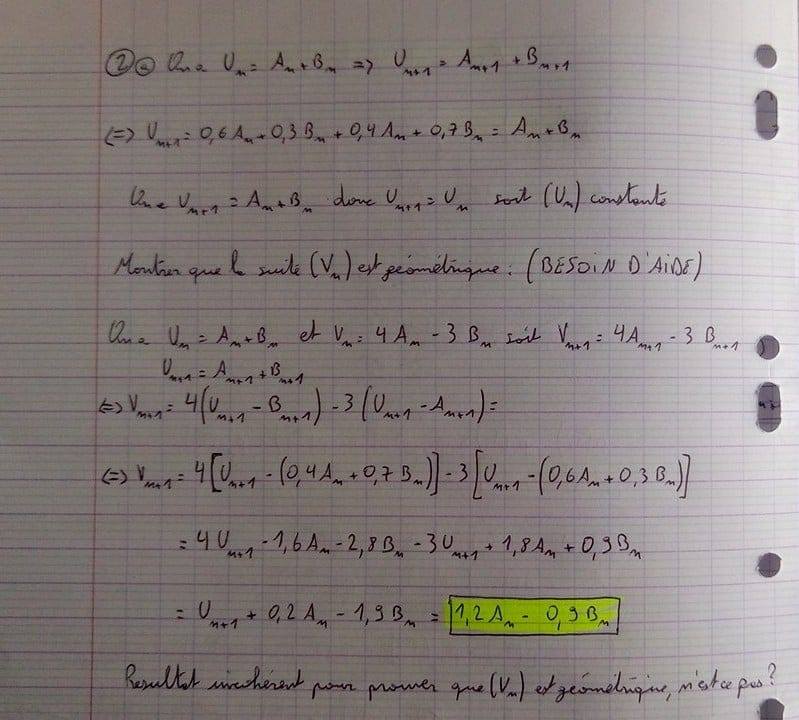 ② ⓐ On a Un = An + Bn => Un+1 = An+1 + Bn+1
(=) Un+1 = 0,6 An + 0,3 Bn + 0,4 An + 0,7 Bn = An + Bn
On a Un+1 = An + Bn donc Un+1 = Un soit (Un) constante
Montrer que la suite (Vn) est géométrique : (BESOIN D'AIDE)
On a Un = An + Bn et Vn = 4 An - 3 Bn soit Vn+1 = 4 An+1 - 3 Bn+1
Un+1 = An+1 + Bn+1
(=) Vn+1 = 4(Un+1 - Bn+1) - 3(Un+1 - An+1) =
(=) Vn+1 = 4[Un+1 - (0,4 An + 0,7 Bn)] - 3[Un+1 - (0,6 An + 0,3 Bn)]
= 4 Un+1 - 1,6 An - 2,8 Bn - 3 Un+1 + 1,8 An + 0,9 Bn
= Un+1 + 0,2 An - 1,9 Bn = 1,2 An - 0,9 Bn
Resultat incohérent pour prouver que (Vn) est géométrique, n'est ce pas ?